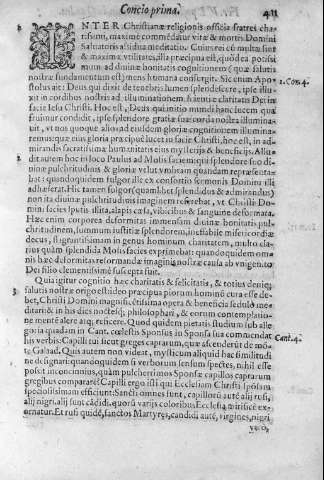 Concio prima. 411
INTER Christianæ religionis officia fratres cha-
rissimi, maximè commēdātur vitæ & mortis Domini
Saluatoris assidua meditatio. Cuius rei cū multæ sint
& maximæ vtilitates, illa præcipua est, quòd ea potissi
mum ad diuinæ bonitatis cognitionem (quæ salutis
nostræ fundamentum est) mens humana consurgit. Sic enim Apo
stolus ait: Deus qui dixit de tenebris lumen splendescere, ipse illu-
xit in cordibus nostris ad illuminationem scientiæ claritatis Dei in
facie Iesu Christi. Hoc est, Deus qui initio mundi hanc lucem qua
fruimur condidit, ipse splendore gratiæ suæ corda nostra illumina-
uit, vt nos quoque alios ad eiusdem gloriæ cognitionem illumina-
remus: quæ eius gloria præcipuè lucet in facie Christi, hoc est, in ad-
mirando sacratissimæ humanitatis eius mysterijs & beneficijs. Allu-
dit autem hoc in loco Paulus ad Mosis faciem: qui splendore suo di-
uinæ pulchritudinis & gloriæ velut vmbram quandam repræsenta-
bat: quandoquidem fulgor ille ex consortio sermonis Domini illi
adhæserat. Hic tamen fulgor (quamlibet splendidus & admirandus)
non ita diuinæ pulchritudinis imaginem referebat, vt Christi Do-
mini facies sputis illita, alapis cæsa, vibicibus & sanguine deformata.
Hæc enim corporea deformitas immensam diuinæ bonitatis pul-
chritudinem, summum iustitiæ splendorem, ineffabile misericordiæ
decus, flagrantissimam in genus hominum charitatem, multo cla-
rius quàm splendida Mosis facies exprimebat: quandoquidem om-
nis hæc deformitas reformandæ imaginis nostræ causa ab vnigenito
Dei filio clementissimè suscepta fuit.
Quia igitur cognitio hæc charitatis & felicitatis, & totius deniq;
salutis nostræ origo est: ideo præcipua piorum hominū cura esse de-
bet, Christi Domini magnificētissima opera & beneficia sedulò me-
ditari: & in his dies noctesq; philosophari, & eorum contemplatio-
ne mente alere atq; reficere. Quod quidem pietatis studium sub alle-
goria quadam in Cant. cœlestis Sponsus in Sponsa sua commendat
his verbis: Capilli tui sicut greges caprarum, quæ ascenderūt de mō-
te Galaad. Quis autem non videat, mysticum aliquid hac similitudi
ne designari: quandoquidem si verborum sensum spectes, nihil esse
possit inconcinnius, quàm pulcherrimos Sponsæ capillos caprarum
gregibus comparare? Capilli ergo isti qui Ecclesiam Christi spōsam
speciosissimam efficiunt: Sancti omnes sunt, capillorū autē alij rufi,
alij nigri, alij sunt cādidi, quorū varijs coloribus Ecclesia mirificè ex-
ornatur. Et rufi quidē, sanctos Martyres, candidi autē, virgines, nigri
verò,
1
2. Cor. 4.
2
3
Cant. 4.